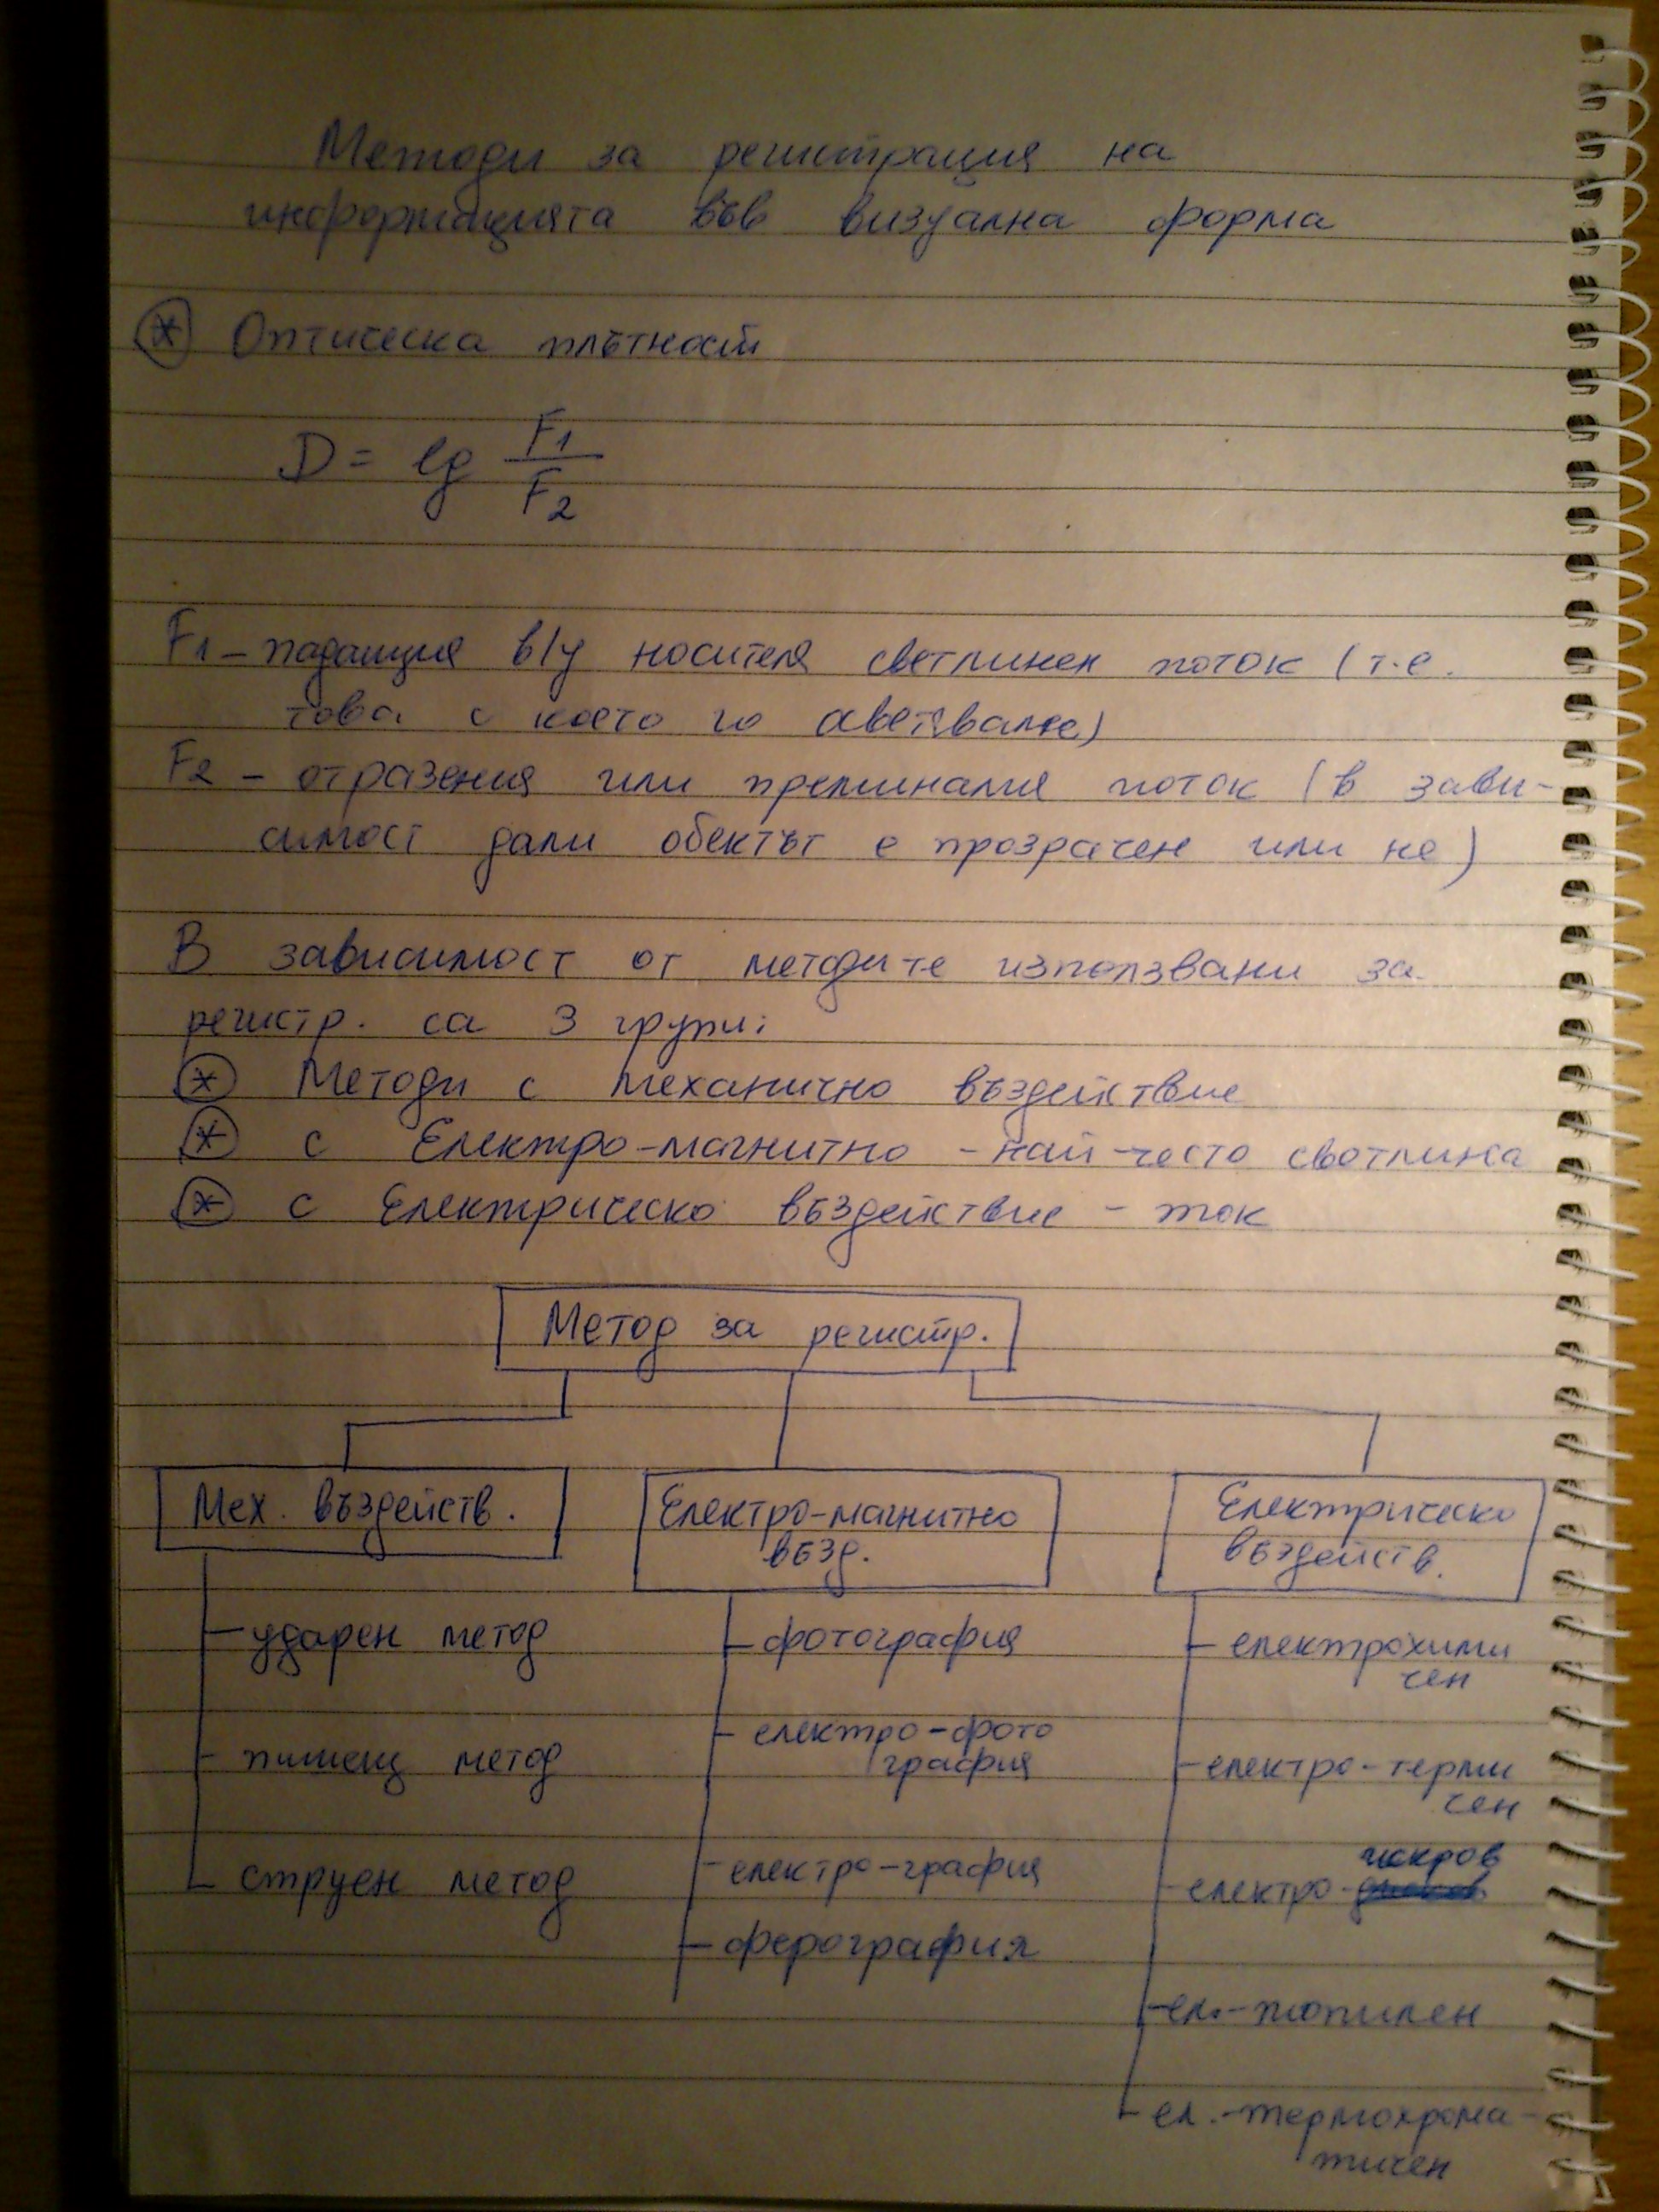 Методи за регистрация на
информацията във визуална форма
* Оптическа плътност
D = lg F1/F2
F1 – падащия в/у носителя светлинен поток (т.е.
това с което го осветяваме)
F2 – отразения или преминалия поток (в зави-
симост дали обектът е прозрачен или не)
В зависимост от методите използвани за
регистр. са 3 групи:
* Методи с механично въздействие
* с Електро-магнитно - най-често светлина
* с Електрическо въздействие - ток
Метод за регистр.
Мех. въздейств.
- ударен метод
- пишещ метод
- струен метод
Електро-магнитно
възд.
- фотография
- електро-фото
графия
- електро-графия
- ферография
Електрическо
въздейств.
- електрохими
чен
- електро-терми
чен
искров
- електро-
- ел.-топилен
- ел.-термохрома-
тичен